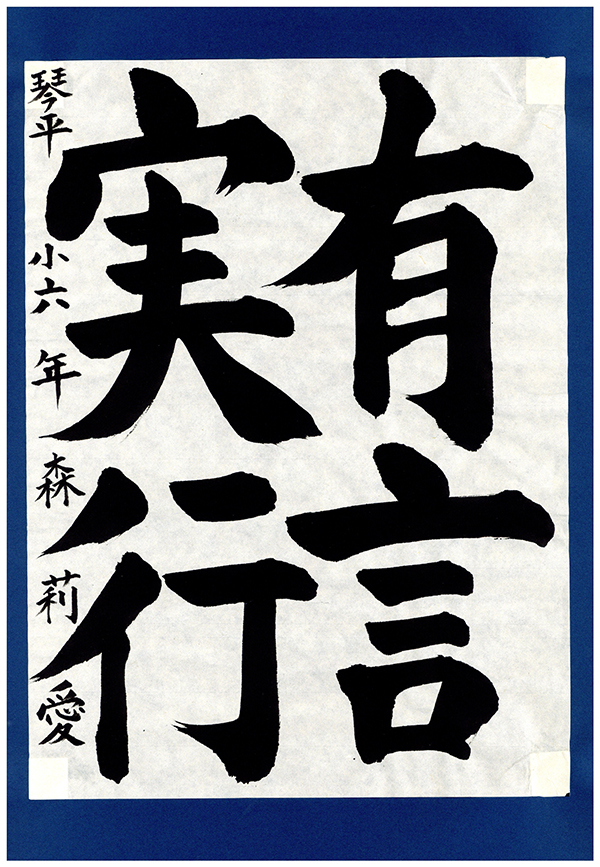 有言
実行
琴平 小六年 森莉愛